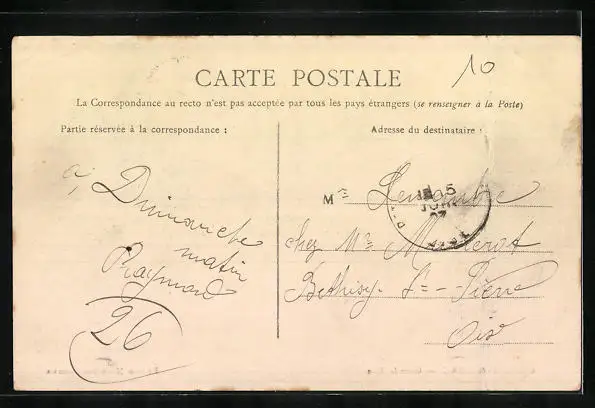 10
CARTE POSTALE
La Correspondance au recto n'est pas acceptée par tous les pays étrangers (se renseigner à la Poste)
Partie réservée à la correspondance :
Adresse du destinataire :
à Dimanche
matin
Raymond
26
M
chez Mr
Béthisy- St = Pierre
Oise